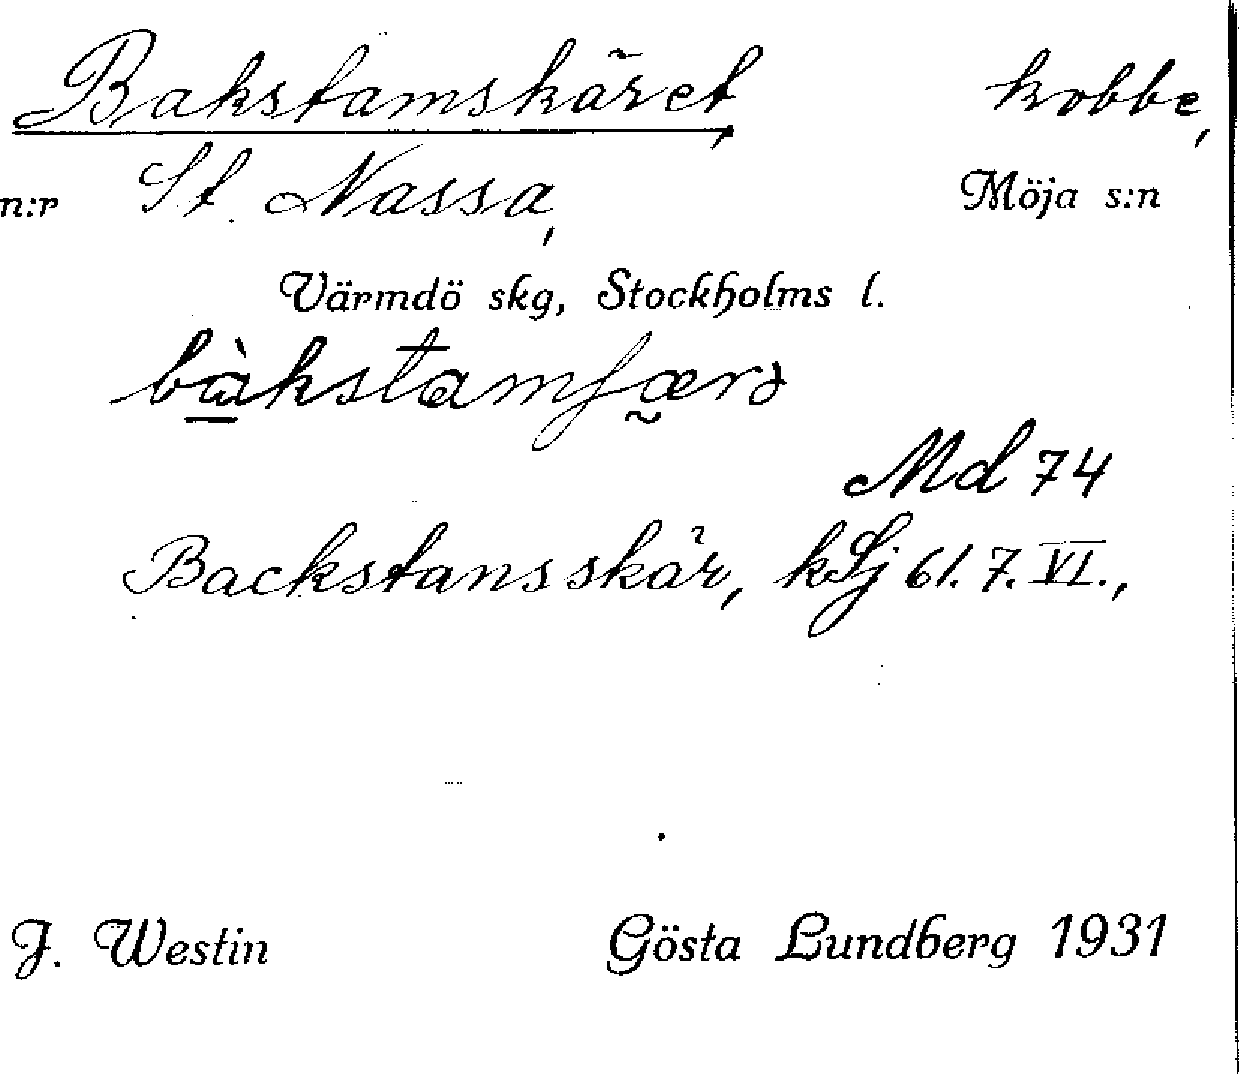 Bakstamskäret, kobbe,
n:r St. Nassa, Möja s:n
Värmdö skg, Stockholms l.
bàkstamʃærə
Md 74
Backstansskär, kSj 61. 7. VI.,
J. Westin Gösta Lundberg 1931